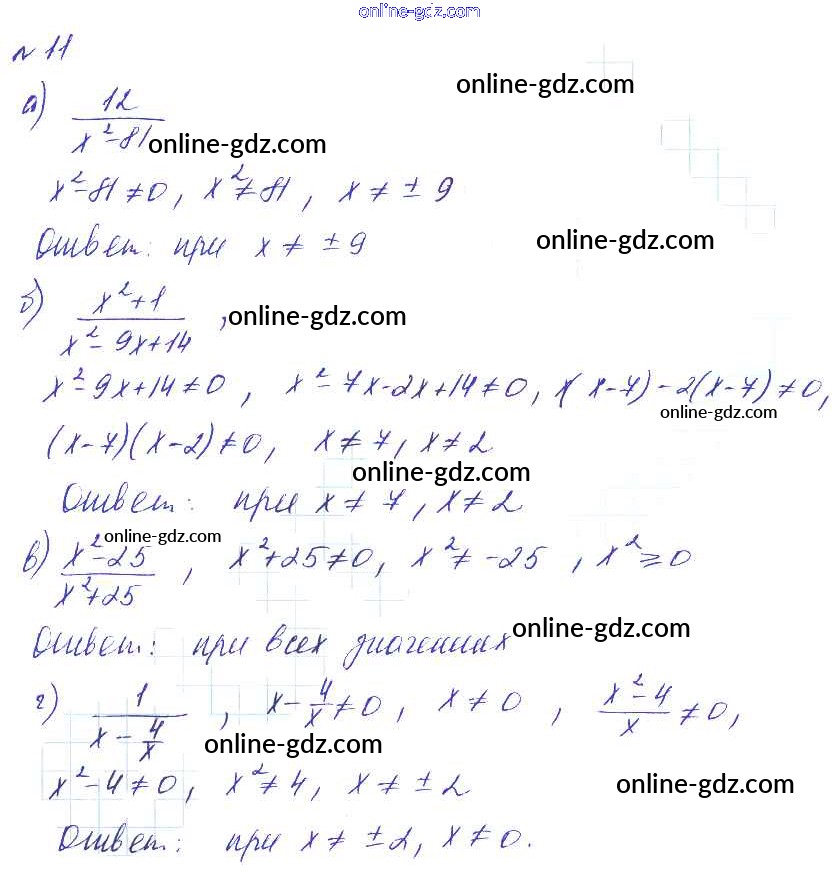 online-gdz.com
№ 11
online-gdz.com
а) 12/(x²-81) online-gdz.com
x²-81≠0, x²≠81, x≠±9
Ответ: при x≠±9 online-gdz.com
б) (x²+1)/(x²-9x+14), online-gdz.com
x²-9x+14≠0, x²-7x-2x+14≠0, x(x-7)-2(x-7)≠0,
online-gdz.com
(x-7)(x-2)≠0, x≠7, x≠2
online-gdz.com
Ответ: при x≠7, x≠2
online-gdz.com
в) (x²-25)/(x²+25), x²+25≠0, x²≠-25, x²≥0
Ответ: при всех значениях online-gdz.com
г) 1/(x-4/x), x-4/x≠0, x≠0, (x²-4)/x≠0,
online-gdz.com
x²-4≠0, x²≠4, x≠±2 online-gdz.com
Ответ: при x≠±2, x≠0.